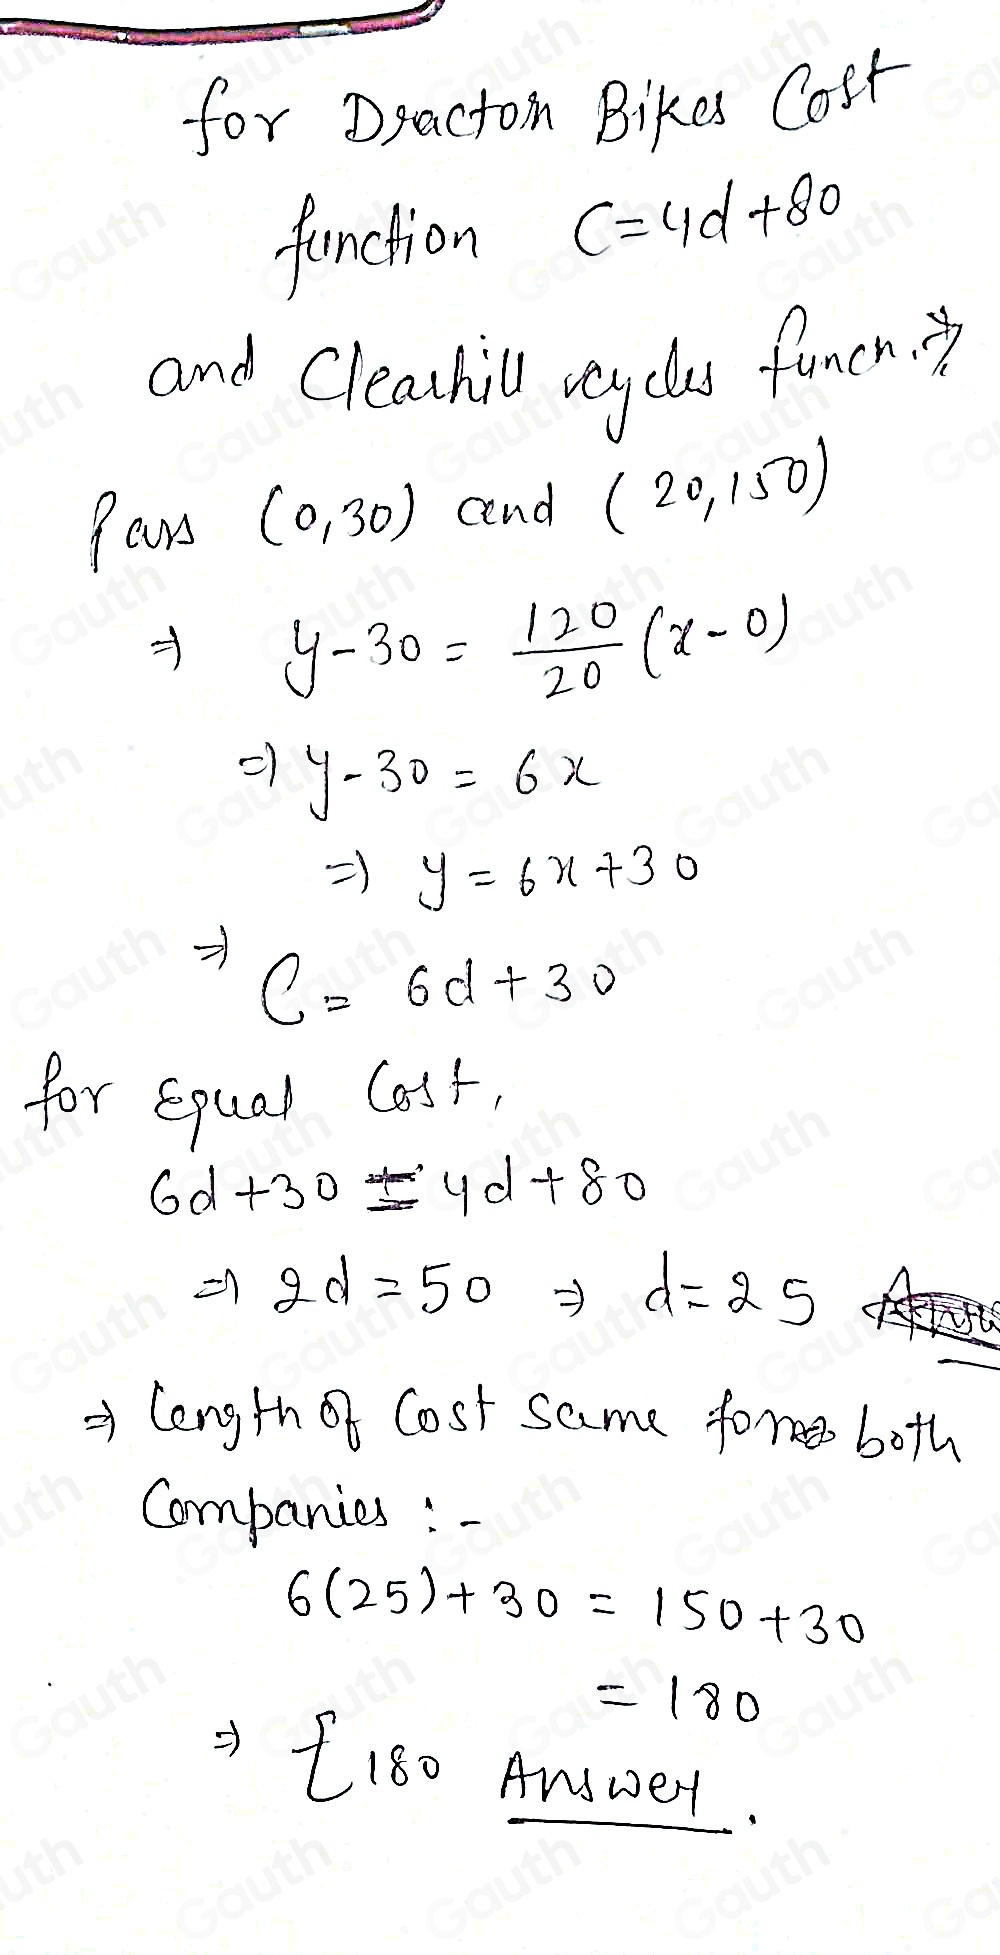 for Dracton Bikes Cost
function C=4d+80
and Clearhill cycles funcn.
Pass (0,30) and (20,150)
⇒ y-30 = 120/20 (x-0)
⇒ y-30 = 6x
⇒ y = 6x+30
⇒ C = 6d+30
for Equal Cost,
6d+30 = 4d+80
⇒ 2d=50 ⇒ d=25
⇒ length of Cost same for both
Companies :-
6(25)+30 = 150+30
= 180
⇒ £180 Answer.